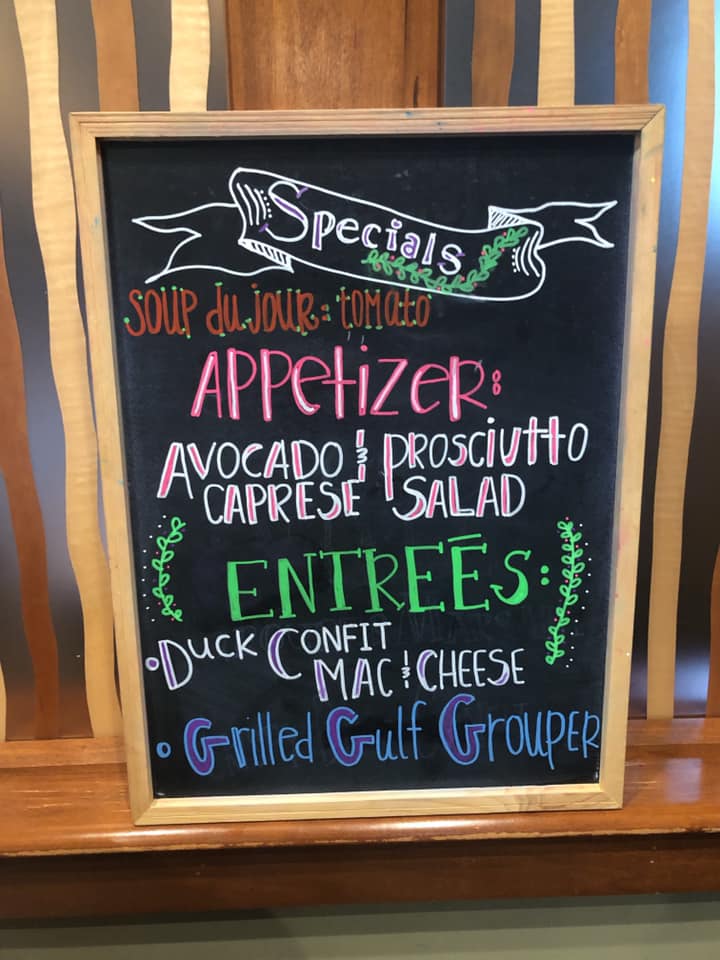 Specials
Soup du jour: tomato
Appetizer:
Avocado & Prosciutto
Caprese Salad
Entreés:
• Duck Confit
Mac & Cheese
• Grilled Gulf Grouper